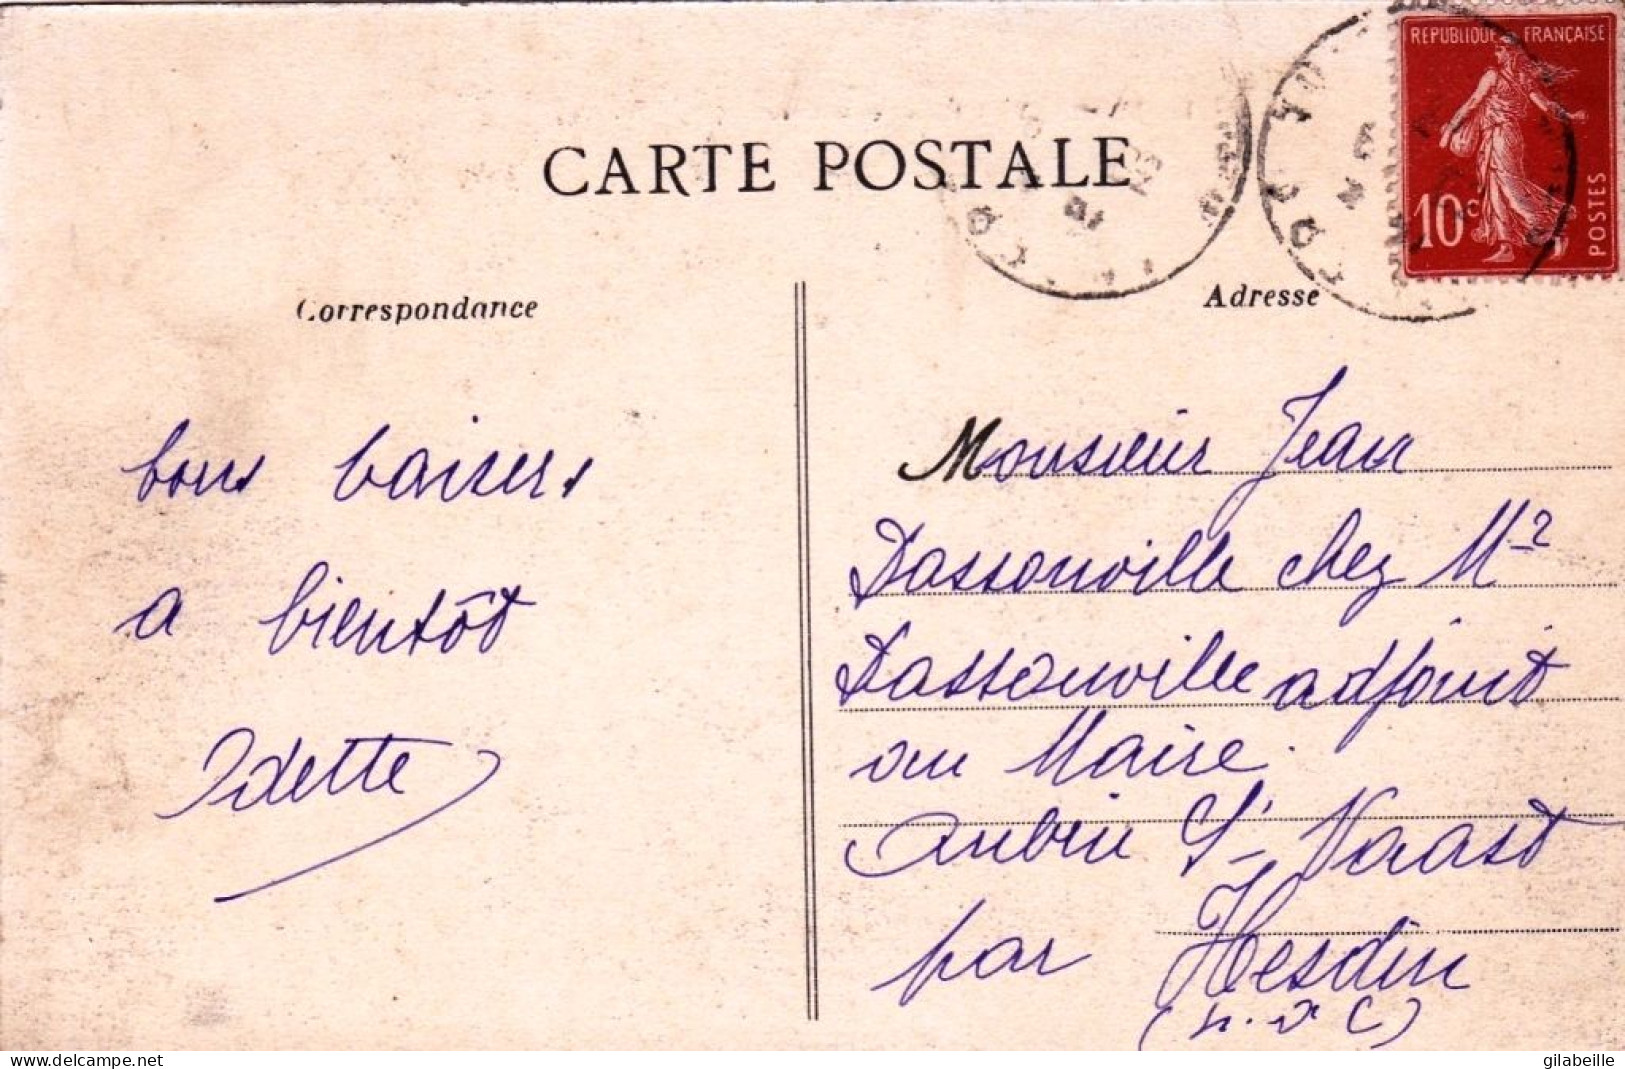 CARTE POSTALE
REPUBLIQUE FRANÇAISE
10c
POSTES
Correspondance
Adresse
bons baisers
a bientôt
Odette
Monsieur Jean
Dassonville chez Mr
Dassonville adjoint
au Maire.
Aubin St Vaast
par Hesdin
(P. d C)
https://www.delcampe.net
gilabeille